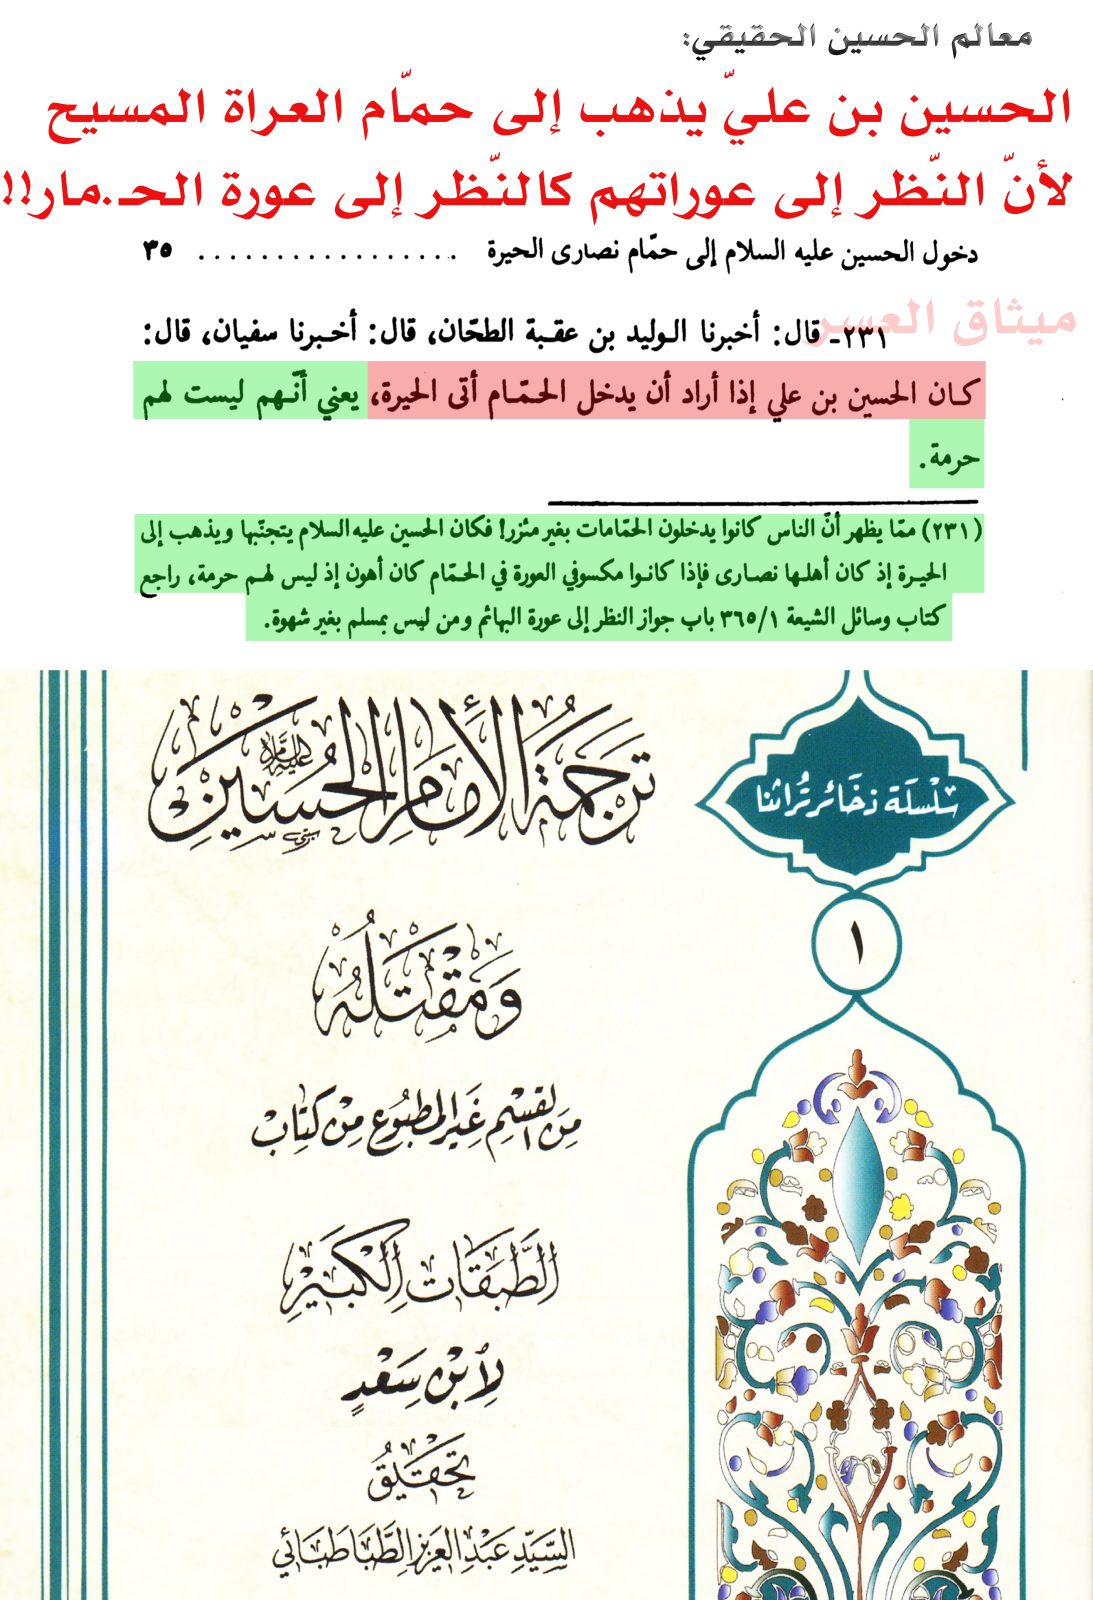 معالم الحسين الحقيقي:
الحسين بن عليّ يذهب إلى حمّام العراة المسيح
لأنّ النّظر إلى عوراتهم كالنّظر إلى عورة الحـ.مار!!
دخول الحسين عليه السلام إلى حمّام نصارى الحيرة . . . . . . . . . . . . . . . . . ٣٥
ميثاق العسر
٢٣١ـ قال: أخبرنا الوليد بن عقبة الطحّان، قال: أخبرنا سفيان، قال:
كان الحسين بن علي إذا أراد أن يدخل الحمّام أتى الحيرة، يعني أنّهم ليست لهم
حرمة.
(٢٣١) ممّا يظهر أنّ الناس كانوا يدخلون الحمّامات بغير مئزر! فكان الحسين عليه السلام يتجنّبها ويذهب إلى
الحيرة إذ كان أهلها نصارى فإذا كانوا مكسوفي العورة في الحمّام كان أهون إذ ليس لهم حرمة، راجع
كتاب وسائل الشيعة ٣٦٥/١ باب جواز النظر إلى عورة البهائم ومن ليس بمسلم بغير شهوة.
سلسلة ذخائر تراثنا
١
ترجمة الإمام الحسين عليه السلام
ومقتله
من القسم غير المطبوع من كتاب
الطبقات الكبير
لابن سعد
تحقيق
السيد عبد العزيز الطباطبائي